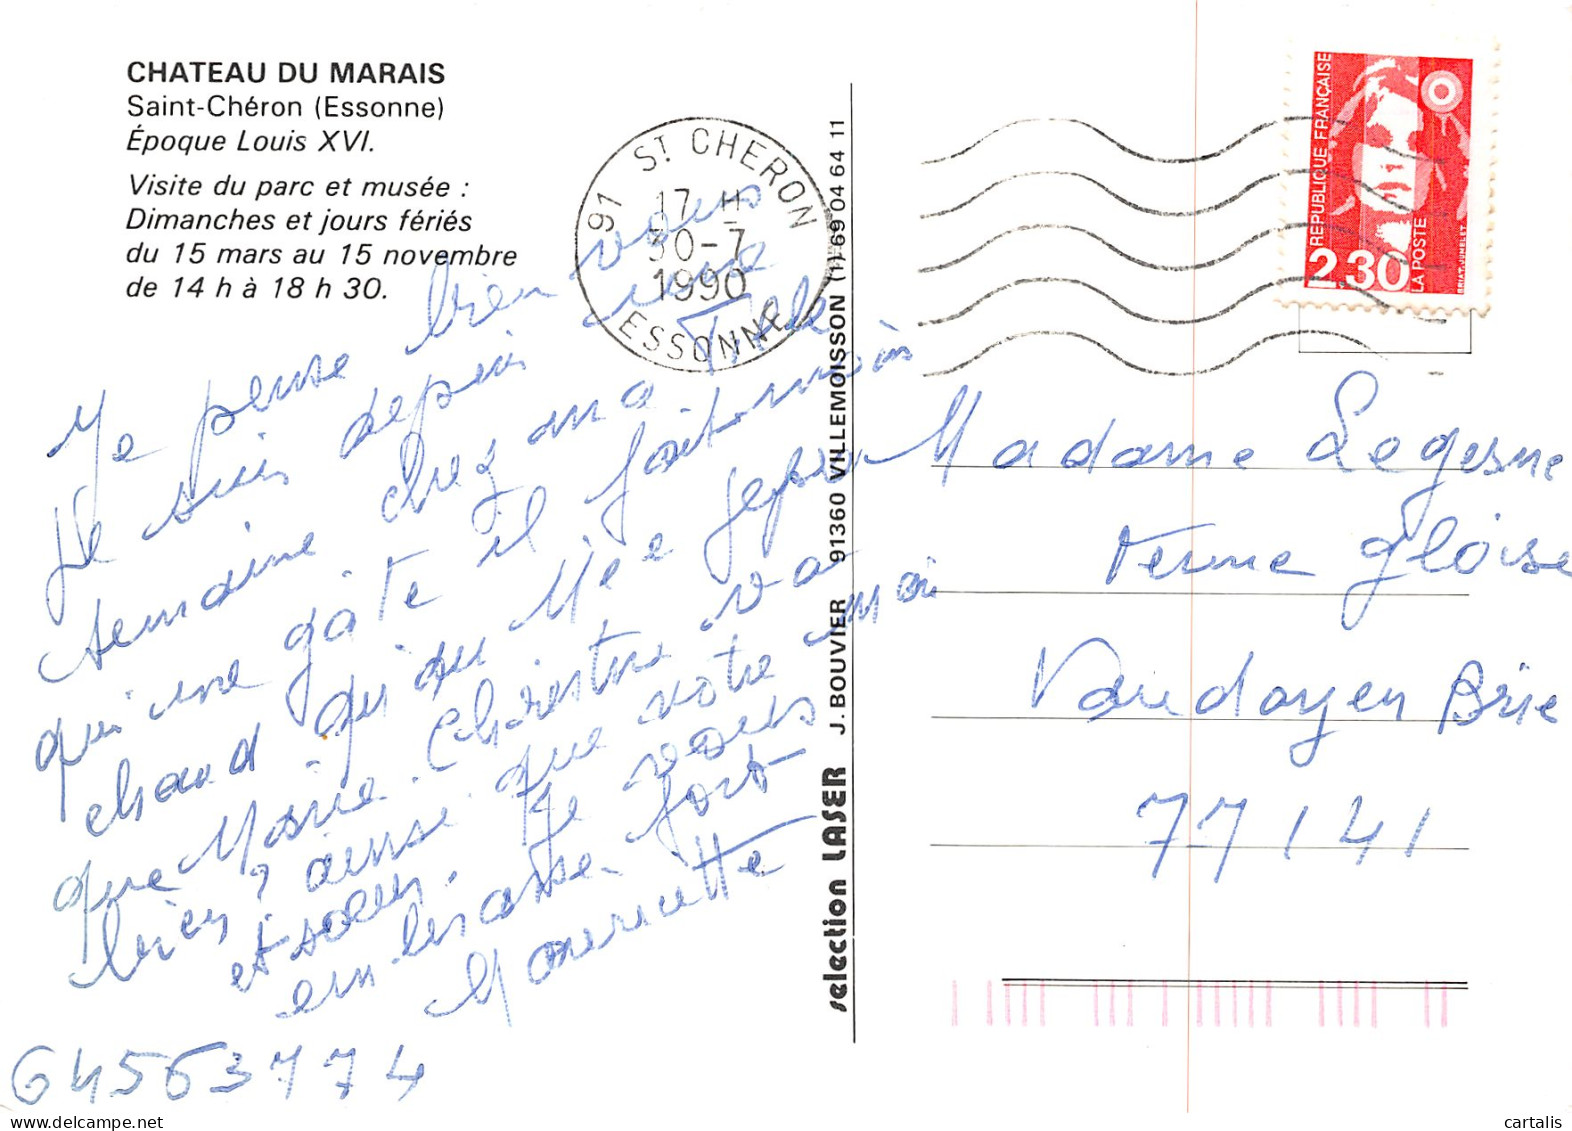 CHATEAU DU MARAIS
Saint-Chéron (Essonne)
Époque Louis XVI.
Visite du parc et musée :
Dimanches et jours fériés
du 15 mars au 15 novembre
de 14 h à 18 h 30.
91 ST CHERON
17 H
30-7
1990
ESSONNE
REPUBLIQUE FRANÇAISE
2,30
LA POSTE
BRIAT.JUMELET
Je pense bien vous
Je suis depuis une
semaine chez ma
qui me gâte il fait moins
chaud qu
que Marie. Christine va
bien, ainsi que votre
et soeur. Je vous
embrasse fort
Mauricette
64563774
selection LASER J. BOUVIER 91360 VILLEMOISSON (1) 69 04 64 11
Madame
Ferme
Vaudoyen Brie
77141
cartalis